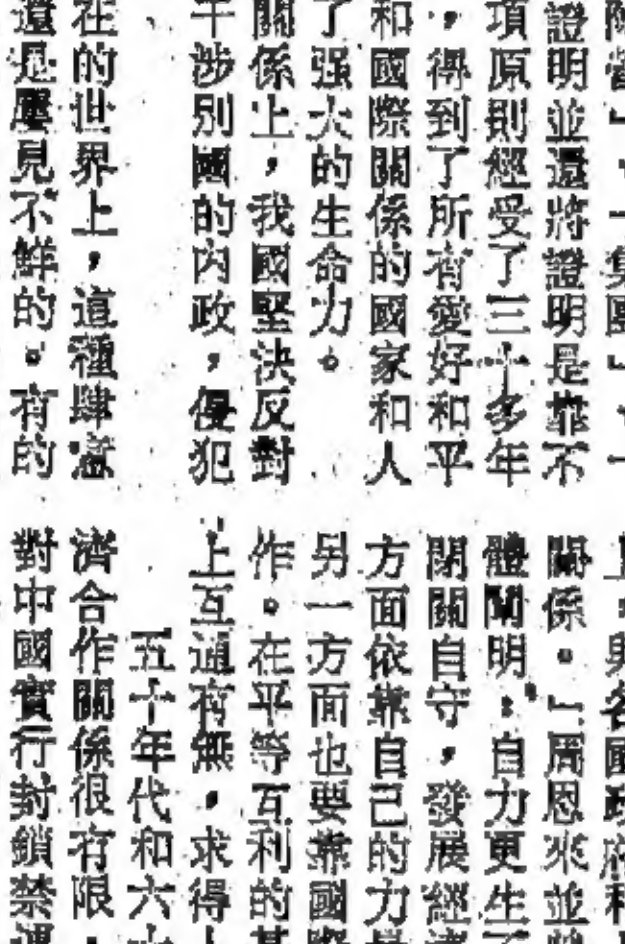 陣營」、「集團」、一
證明並還將證明是靠不
項原則經受了三十多年
，得到了所有愛好和平
和國際關係的國家和人
了强大的生命力。
關係上，我國堅決反對
干涉別國的内政，侵犯
在的世界上，這種肆意
還是屢見不鮮的。有的
上，與各國政府和
關係。」周恩來並
體闡明：自力更生
閉關自守，發展經濟
方面依靠自己的力
另一方面也要靠國際
作。在平等互利的基
上互通有無，求得
五十年代和六十
濟合作關係很有限，
對中國實行封鎖禁運